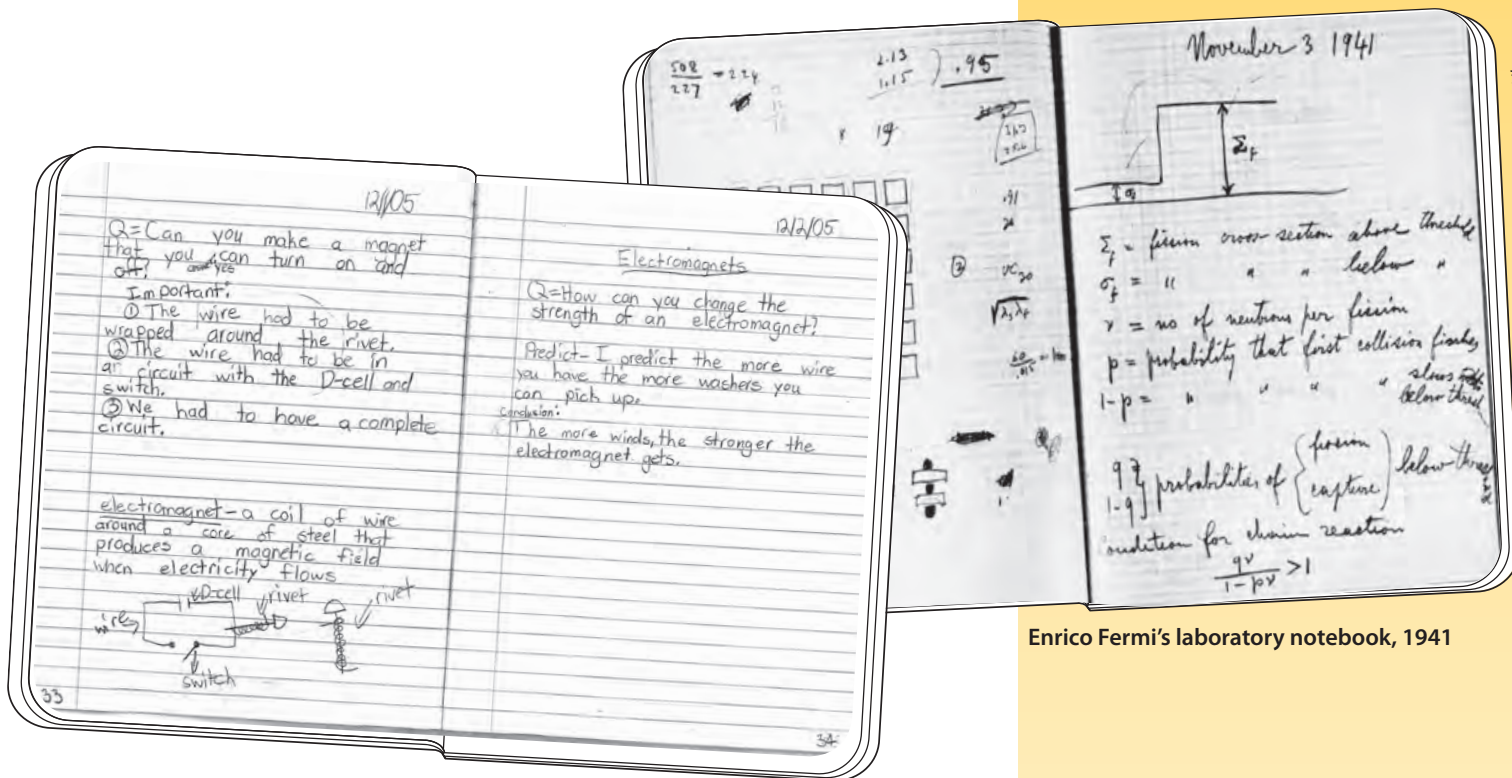 12/1/05
Q=Can you make a magnet
that you can turn on and
off? yes
Important:
① The wire had to be
wrapped around the rivet.
② The wire had to be in
a circuit with the D-cell and
switch.
③ We had to have a complete
circuit.
electromagnet - a coil of wire
around a core of steel that
produces a magnetic field
when electricity flows
D-cell rivet rivet
wire
switch
33
12/2/05
Electromagnets
Q=How can you change the
strength of an electromagnet?
Predict- I predict the more wire
you have the more washers you
can pick up.
Conclusion:
The more winds, the stronger the
electromagnet gets.
34
508/227 = 224
2.13
1.15 ) .95
19
.91
November 3 1941
Σf
σf
Σf = fission cross section above threshold
σf = " " " below "
ν = no of neutrons per fission
p = probability that first collision fissions
1-p = " " " slows
below thresh
q } probabilities of { fission } below thresh
1-q } { capture }
condition for chain reaction
qν / 1-pν > 1
Enrico Fermi's laboratory notebook, 1941